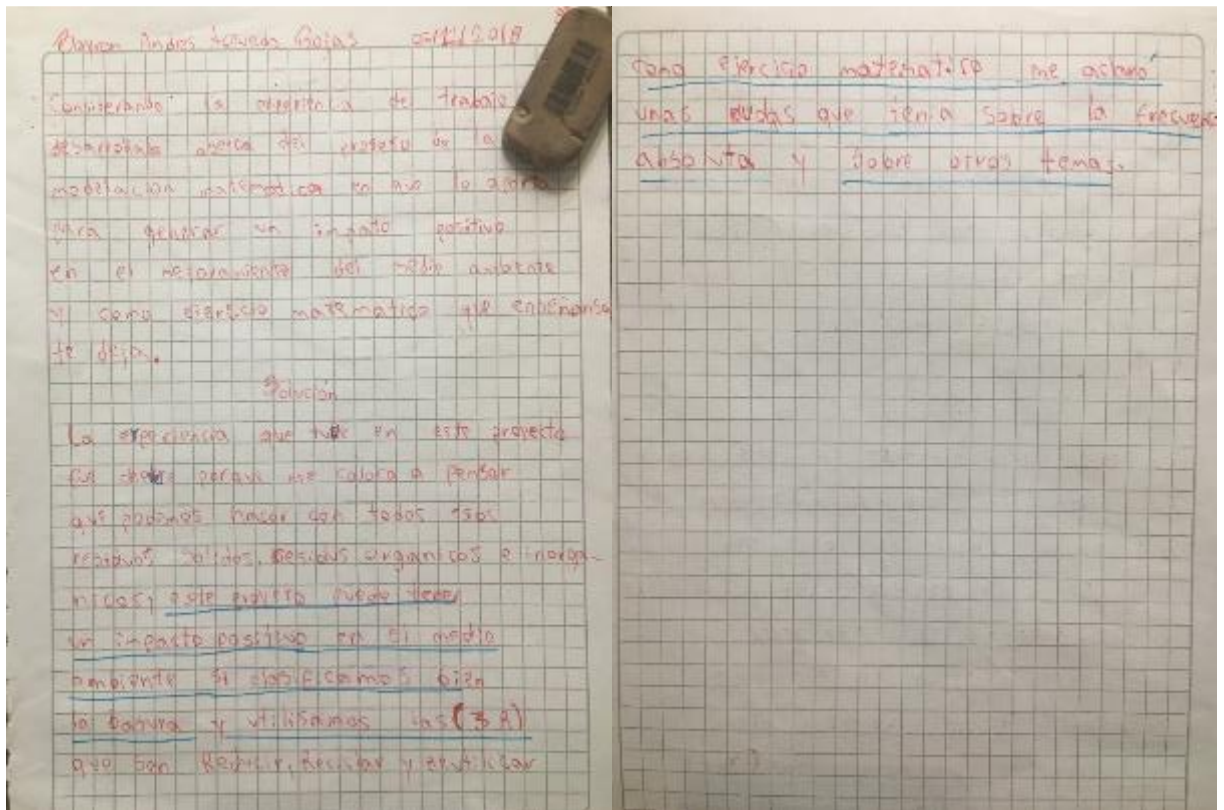 Andres Acevedo Rojas
Considerando la de trabajo
desarrollado acerca del proyecto de la
modelación matemática en que lo
para generar un positivo
en el mejoramiento del medio ambiente
y como matematico que enseñansa
te deja.
Solución
La experiencia que tuve en este proyecto
fue chevre porque me coloco a pensar
que podemos hacer con todos esos
solidos, residus organicos e inorga-
nicos, este puede tener
un impacto positivo en el medio
ambiente si clasificamos bien
la basura y utilisamos las (3 R)
que son Reducir, Reciclar y
como ejercicio matematico me aclaró
unas dudas que tenia sobre la
absoluta y sobre otros temas.